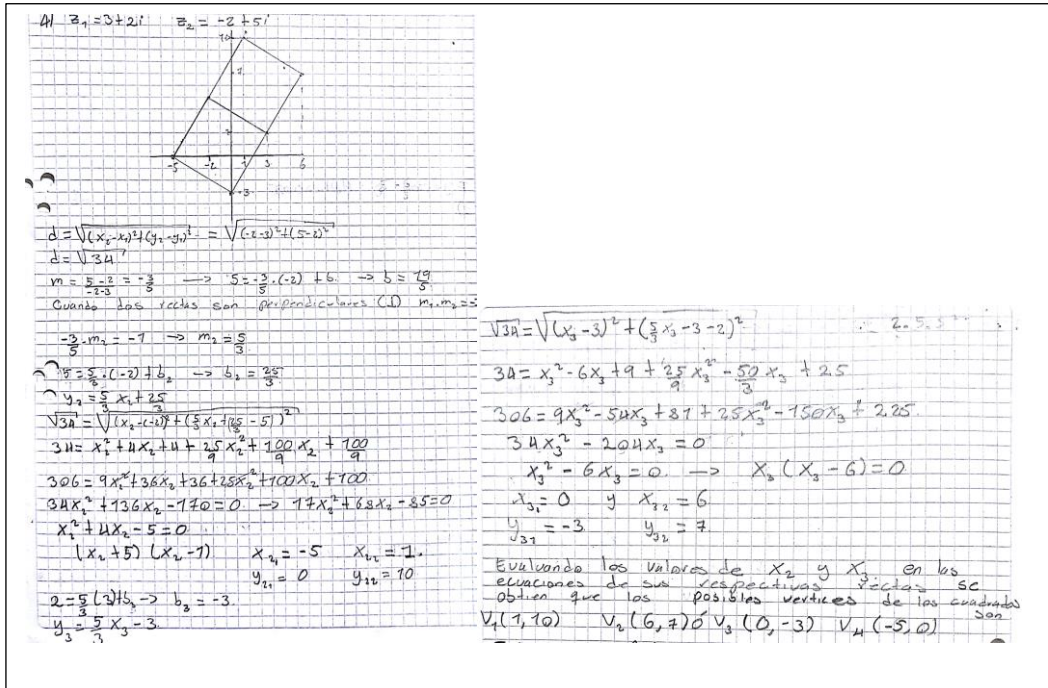 4) z₁ = 3+2i z₂ = -2+5i
10
7
-5 -2 1 3 6
-3
d = √((x₂-x₁)²+(y₂-y₁)²) = √((-2-3)²+(5-2)²)
d = √34
m = (5-2)/(-2-3) = -3/5 → 5 = -3/5·(-2)+b → b = 19/5
Cuando dos rectas son perpendiculares (⊥) m₁·m₂ =
-3/5·m₂ = -1 → m₂ = 5/3
5 = 5/3·(-2)+b₂ → b₂ = 25/3
y₂ = 5/3 x₂ + 25/3
√34 = √((x₂-(-2))²+(5/3 x₂+(25/3 - 5))²)
34 = x₂²+4x₂+4+25/9 x₂²+100/9 x₂+100/9
306 = 9x₂²+36x₂+36+25x₂²+100x₂+100
34x₂²+136x₂-170=0 → 17x₂²+68x₂-85=0
x₂²+4x₂-5=0
(x₂+5)(x₂-1) x₂₁ = -5 x₂₂ = 1.
y₂₁ = 0 y₂₂ = 10
2 = 5/3(3)+b₃ → b₃ = -3.
y₃ = 5/3 x₃ -3.
√34 = √((x₃-3)²+(5/3 x₃-3-2)²)
34 = x₃²-6x₃+9+25/9 x₃²-50/3 x₃+25
306 = 9x₃²-54x₃+81+25x₃²-150x₃+225.
34x₃²-204x₃=0
x₃²-6x₃=0. → x₃(x₃-6)=0
x₃₁ = 0 y x₃₂ = 6
y₃₁ = -3 y₃₂ = 7
Evaluando los valores de x₂ y x₃ en las
ecuaciones de sus respectivas rectas se
obtien que los posibles vertices de los cuadrados
son
V₁(1,10) V₂(6,7) ó V₃(0,-3) V₄(-5,0)